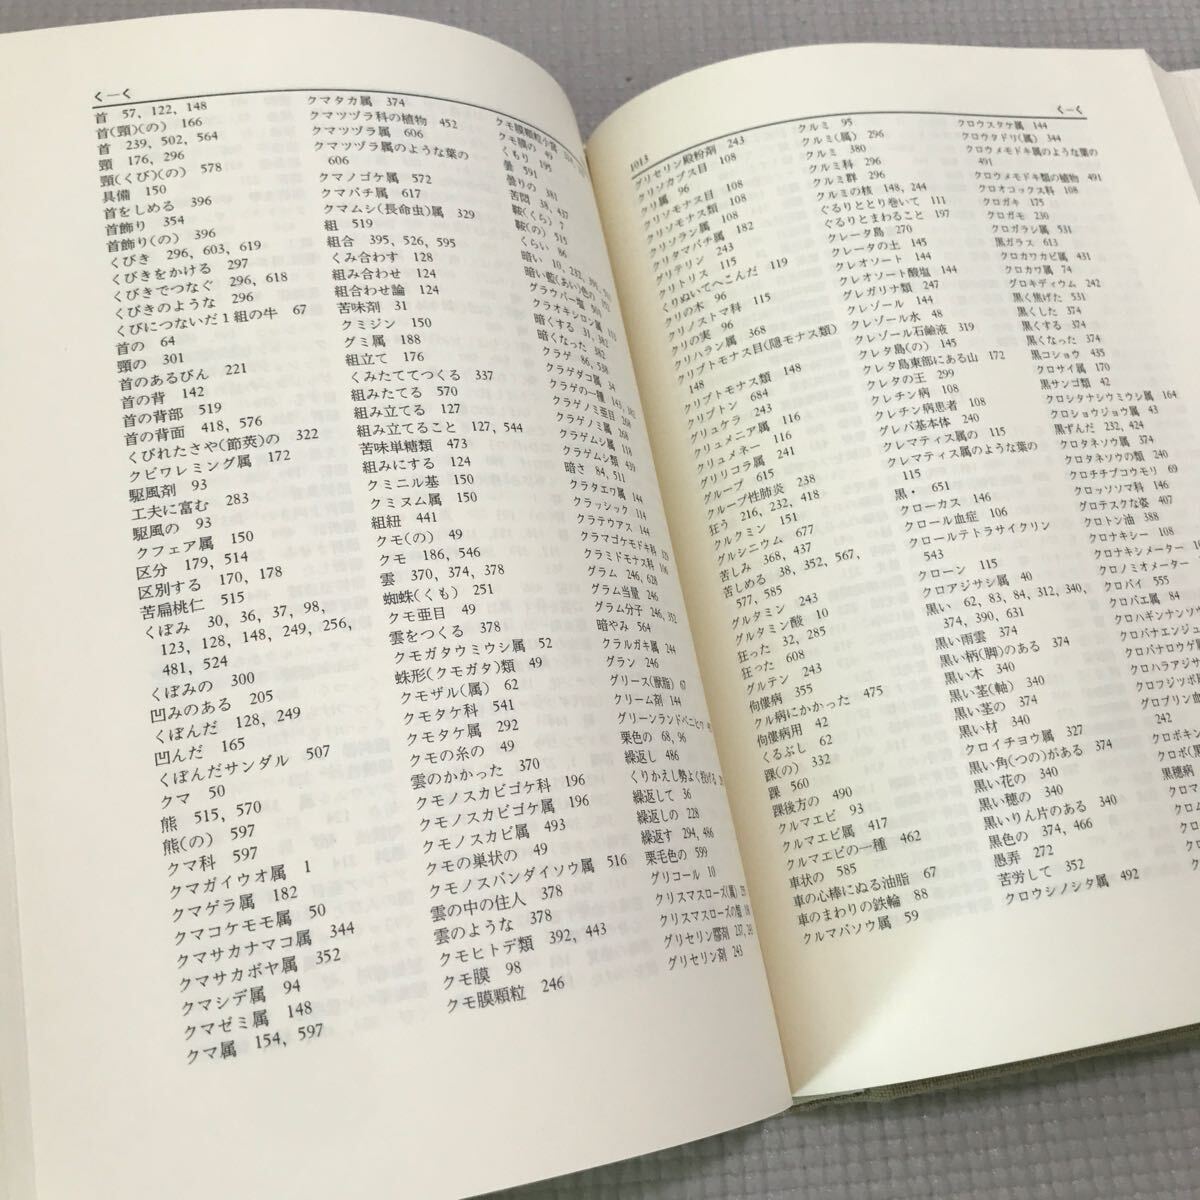 くーく
首 57, 122, 148
首(頸)(の) 166
首 239, 502, 564
頸 176, 296
頸(くび)(の) 57
具備 150
首をしめる 396
首飾り 354
首飾り(の) 396
くびき 296, 603, 619
くびきをかける 297
くびきでつなぐ 296, 618
くびきのような 296
くびにつないだ1組の牛 67
首の 64
頸の 301
首のあるびん 221
首の背 142
首の背部 519
首の背面 418, 576
くびれたさや(節莢)の 322
クビワレミング属 172
駆風剤 93
工夫に富む 283
駆風の 93
クフェア属 150
区分 179, 514
区別する 170, 178
苦扁桃仁 515
くぼみ 30, 36, 37, 98,
123, 128, 148, 249, 256,
481, 524
くぼみの 300
凹みのある 205
くぼんだ 128, 249
凹んだ 165
くぼんだサンダル 507
クマ 50
熊 515, 570
熊(の) 597
クマ科 597
クマガイウオ属 1
クマゲラ属 182
クマコケモモ属 50
クマサカナマコ属 344
クマサカボヤ属 352
クマシデ属 94
クマゼミ属 148
クマ属 154, 597
クマタカ属 374
クマツヅラ科の植物 452
クマツヅラ属 606
クマツヅラ属のような葉の
606
クマノゴケ属 572
クマバチ属 617
クマムシ(長命虫)属 329
組 519
組合 395, 526, 595
くみ合わす 128
組み合わせ 124
組合わせ論 124
苦味剤 31
クミジン 150
グミ属 188
組立て 176
くみたててつくる 337
組みたてる 570
組み立てる 127
組み立てること 127, 544
苦味単糖類 473
組みにする 124
クミニル基 150
クミヌム属 150
組紐 441
クモ(の) 49
クモ 186, 546
雲 370, 374, 378
蜘蛛(くも) 251
クモ亜目 49
雲をつくる 378
クモガタウミウシ属 52
蛛形(クモガタ)類 49
クモザル(属) 62
クモタケ科 541
クモタケ属 292
クモの糸の 49
雲のかかった 370
クモノスカビゴケ科 196
クモノスカビゴケ属 196
クモノスカビ属 493
クモの巣状の 49
クモノスバンダイソウ属 516
雲の中の住人 378
雲のような 378
クモヒトデ類 392, 443
クモ膜 98
クモ膜顆粒 246
クモ膜顆粒小窩
クモ膜の 49
くもり 195
曇 591
曇りの 381
苦悶 38, 437
鞍(くら) 7
鞍(の) 515
くらい 66
暗い 10, 232,
暗い藍(あい)色の
グラウバー塩
クラオキシロン属
暗くする 31, 382
暗くなった 382
クラゲ 86, 538
クラゲダコ属 34
クラゲの一種
クラゲノミ亜目 268
クラゲノミ属 268
クラゲムシ属 118
クラゲムシ類 439
暗さ 84, 511
クラタエワ属 144
クラッシック 114
クラテウアス 144
クラマゴケモドキ科
クラミドモナス科 106
グラム 246, 628
グラム当量 246
グラム分子 246, 352
暗やみ 564
クラルガキ属 244
グラン 246
グリース(獣脂) 67
クリーム剤 144
グリーンランドベニヒワ
栗色の 68, 96
繰返し 486
くりかえし勢よく投げる
繰返して 36
繰返しの 228
繰返す 294, 486
栗毛色の 599
グリコール 10
クリスマスローズ(属)
クリスマスローズの類
グリセリン膠剤 237,
グリセリン剤 243
1013
くーく
グリセリン殿粉剤 243
クリソカプス目 108
クリ属 96
クリソモナス目 108
クリソモナス類 108
クリソラン属 108
クリタマバチ属 182
グリテリン 243
クリトリス 115
くりぬいてへこんだ 119
クリの木 96
クリノストマ科 115
クリの実 96
クリハラン属 368
クリプトモナス目(隠モナス類)
148
クリプトモナス類 148
クリプトン 684
グリュケラ 243
クリュメニア属 116
クリュメネー 116
グリリコラ属 241
グループ 615
クループ性肺炎 238
狂う 216, 232, 418
クルクミン 151
グルシニウム 677
苦しみ 368, 437
苦しめる 38, 352, 567,
577, 585
グルタミン 243
グルタミン酸 10
狂った 32, 285
狂った 608
グルテン 243
佝僂病 355
クル病にかかった 475
佝僂病用 42
くるぶし 62
踝(の) 332
踝 560
踝後方の 490
クルマエビ 93
クルマエビ属 417
クルマエビの一種 462
車状の 585
車の心棒にぬる油脂 67
車のまわりの鉄輪 88
クルマバソウ属 59
クルミ 95
クルミ(属) 296
クルミ 380
クルミ科 296
クルミ群 296
クルミの核 148, 244
ぐるりととり巻いて 111
ぐるりとまわること 197
クレータ島 270
クレータの土 145
クレオソート 144
クレオソート酸塩 144
グレガリナ類 247
クレゾール 144
クレゾール水 48
クレゾール石鹸液 319
クレタ島(の) 145
クレタ島東部にある山 172
クレタの王 299
クレチン病 108
クレチン病患者 108
グレバ基本体 240
クレマティス属の 115
クレマティス属のような葉の
115
黒・ 651
クローカス 146
クロール血症 106
クロールテトラサイクリン
543
クローン 115
クロアジサシ属 40
黒い 62, 83, 84, 312, 340,
374, 390, 631
黒い雨雲 374
黒い柄(脚)のある 374
黒い木 340
黒い茎(軸) 340
黒い茎の 374
黒い材 340
クロイチョウ属 327
黒い角(つの)がある 374
黒い花の 340
黒い穂の 340
黒いりん片のある 340
黒色の 374, 466
愚弄 272
苦労して 352
クロウシノシタ属 492
クロウスタケ属 144
クロウタドリ(属) 344
クロウメモドキ属のような葉の
491
クロウメモドキ類の植物 491
クロオコックス科 108
クロガキ 175
クロガモ 230
クロガラシ属 531
黒ガラス 613
クロカワカビ属 431
クロカワ属 74
グロキディウム 242
黒く焦げた 531
黒くした 374
黒くする 374
黒くなった 374
黒コショウ 435
クロサイ属 170
黒サンゴ類 42
クロシタナシウミウシ属 164
クロショウジョウ属 43
黒ずんだ 232, 424
クロタネソウ属 374
クロタネソウの類 240
クロチチブコウモリ 69
クロッソソマ科 146
グロテスクな姿 407
クロトン油 388
クロナキシー 108
クロナキシメーター
クロノミオメーター
クロバイ 555
クロバエ属 84
クロハギンナンソウ
クロバナエンジュ
クロバナロウゲ属
クロハラアジサシ
クロフジツボ
グロブリン血
242
クロボキン
クロボ(黒
黒穂病
クロマ
クロム
クロ